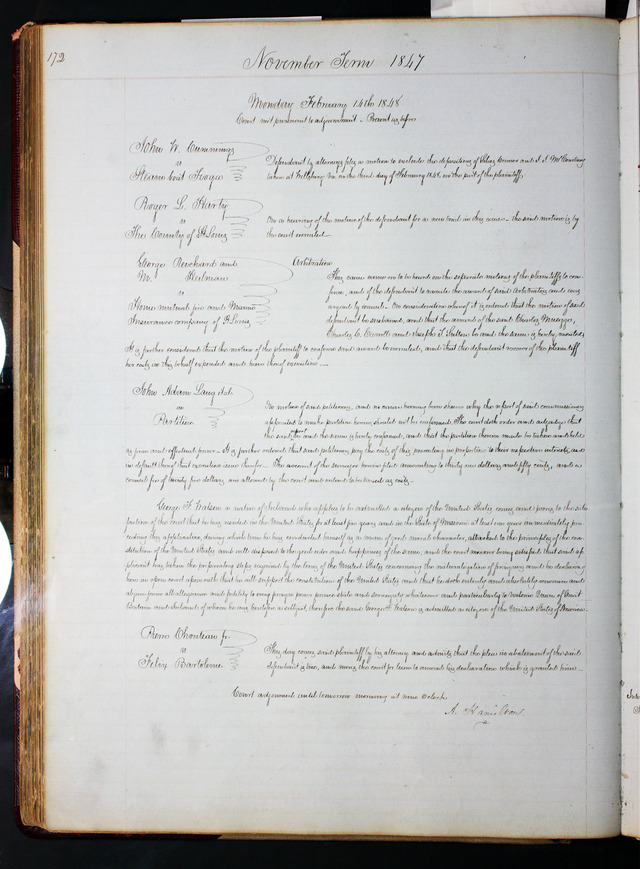 172
November Term 1847
Monday February 14th 1848
Court met pursuant to adjournment - Present as before
John W. Cummings
vs
Steam boat
Defendant by attorney files a motion to exclude the depositions of
taken at on the third day of February 1848, on the part of the plaintiffs.
Roger L. Harty
vs
The County of St Louis
On a hearing of the motion of the defendant for a new bond in this cause - the said motion is by
the court overruled.
George and
M.
vs
Home mutual fire and Marine
Insurance company of St Louis
Arbitration
This cause came on to be heard on the separate motions of the plaintiffs to con-
firm, and of the defendant to vacate the award of said arbitrators and was
argued by counsel. On consideration whereof it is ordered that the motion of said
defendant be sustained, and that the award of the said Charles
Charles C. Carroll and Joseph be and the same is hereby vacated.
It is further considered that the motion of the plaintiff to confirm said award be overruled, and that the defendant recover of the plaintiff
her costs in this behalf expended and have thereof execution.
John Adam Lang et al.
on
Partition
On motion of said petitioners, and no cause having been shown why the report of said commissioners
appointed to make partition herein should not be confirmed. The court doth order and adjudge that
the said report be and the same is hereby confirmed, and that the partition therein made be taken and held
as firm and effectual forever. It is further ordered that said petitioners pay the costs of this proceeding in proportion to their respective interests, and
in default thereof that execution issue therefor. The account of the surveyor herein filed amounting to thirty one dollars and fifty cents, and a
counsel fee of twenty five dollars, are allowed by the court and ordered to be taxed as costs.
George F. a native of Ireland who applies to be admitted a citizen of the United States comes and proves to the satis-
faction of the court that he has resided in the United States for at least five years and in the State of Missouri at least one year immediately pre-
ceding this application, during which time he has conducted himself as a man of good moral character, attached to the principles of the con-
stitution of the United States and well disposed to the good order and happiness of the same, and the court moreover being satisfied that said ap-
plicant has taken the preparatory steps required by the laws of the United States concerning the naturalization of foreigners and he declaring
here in open court upon oath that he will support the constitution of the United States and that he doth entirely and absolutely renounce and
abjure forever all allegiance and fidelity to every foreign power prince state and sovereignty whatsoever and particularly to Victoria Queen of Great
Britain and Ireland of whom he was heretofore a subject, therefore the said George F. is admitted a citizen of the United States of America.
Pierre Chouteau Jr.
vs
Felix Bartoleme
This day comes said plaintiff by his attorney and admits that the plea in abatement of the said
defendant is true, and moves the court for leave to amend his declaration which is granted him.
Court adjourned until tomorrow morning at nine o'clock
A. Hamilton